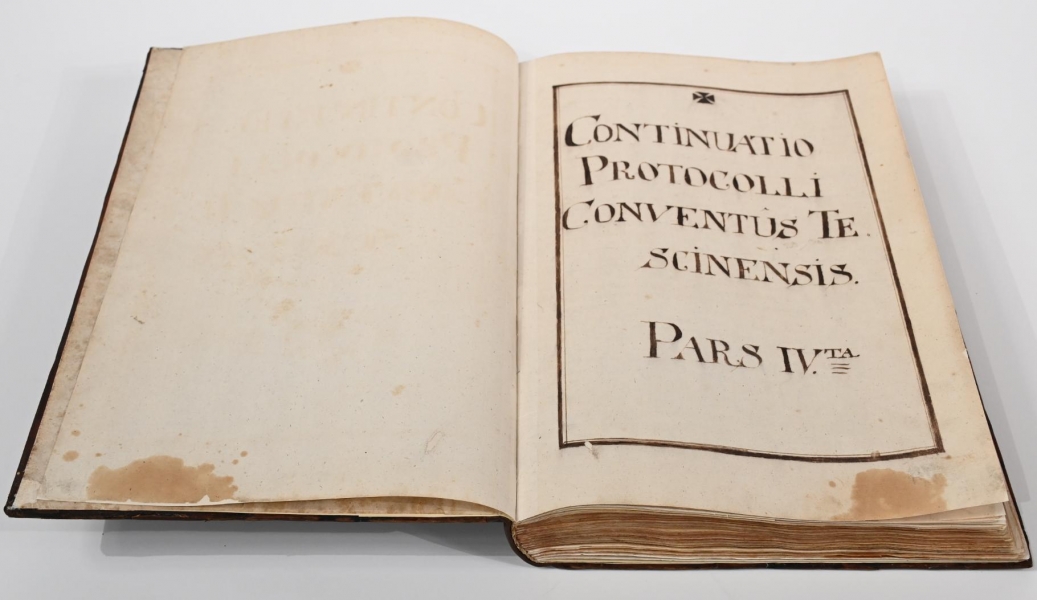 CONTINUATIO
PROTOCOLLI
CONVENTÛS TE
SCINENSIS.
PARS IV.TA